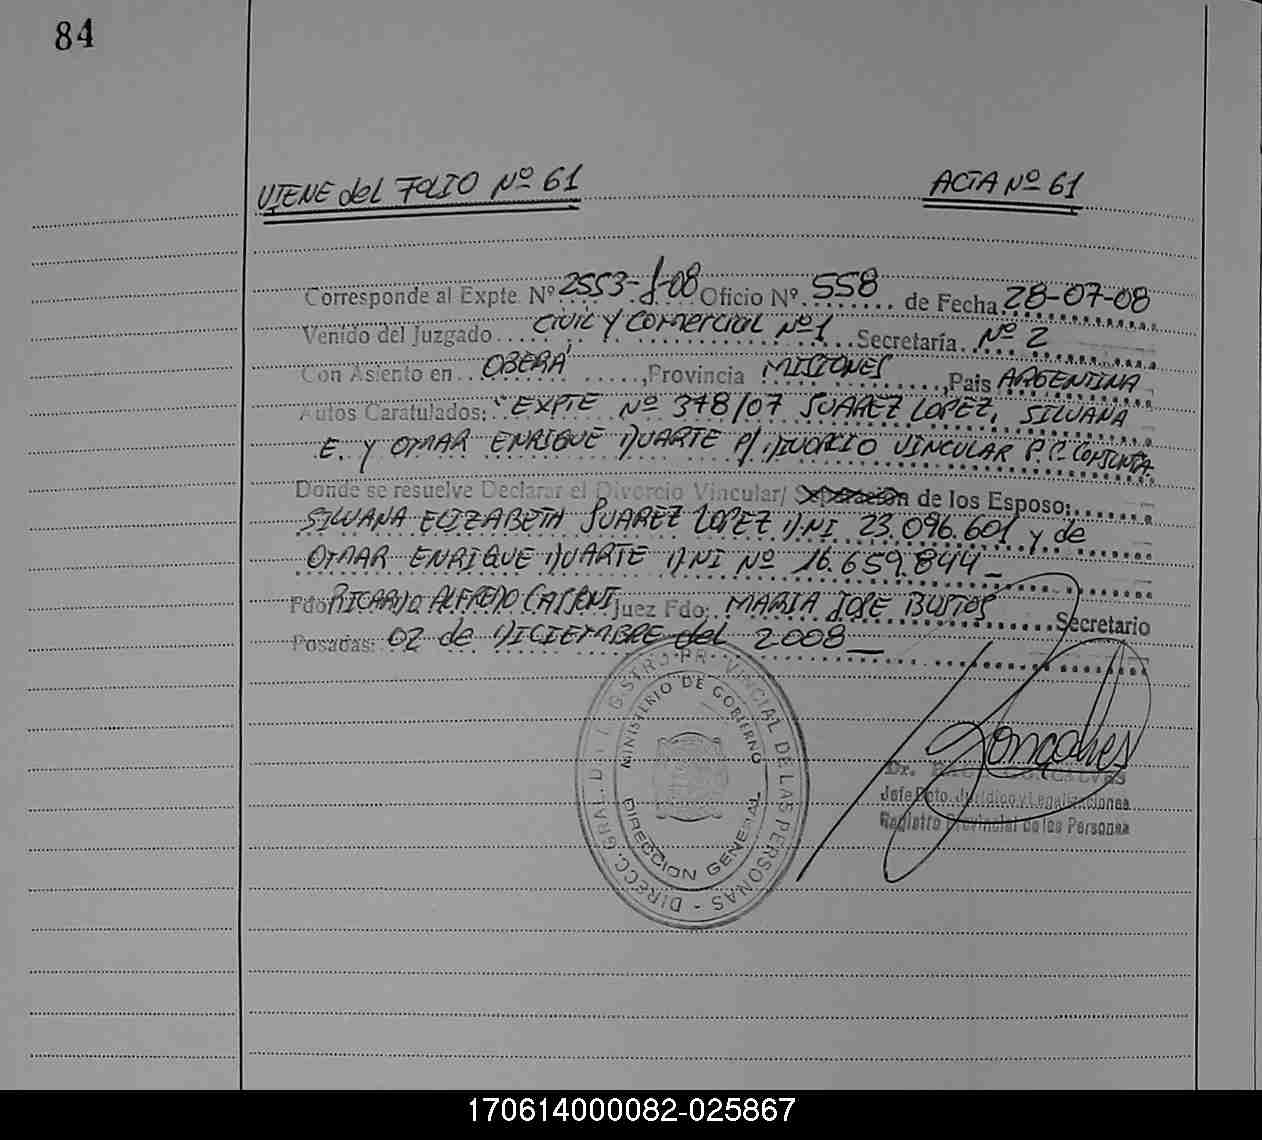 84
VIENE del FOLIO Nº 61 ACTA Nº 61
Corresponde al Expte Nº 2553-J-08 Oficio Nº 558 de Fecha 28-07-08
Venido del Juzgado CIVIL Y COMERCIAL Nº 1 Secretaría Nº 2
Con Asiento en OBERÁ, Provincia MISIONES, Pais ARGENTINA
Autos Caratulados: "EXPTE Nº 378/07 SUAREZ LOPEZ, SILVANA
E. Y OMAR ENRIQUE DUARTE P/ DIVORCIO VINCULAR P.P. CONJUNTA
Donde se resuelve Declarar el Divorcio Vincular/ Separación de los Esposo:
SILVANA ELIZABETH SUAREZ LOPEZ DNI 23.096.601 y de
OMAR ENRIQUE DUARTE DNI Nº 16.659.844_
Fdo RICARDO ALFREDO Juez Fdo: MARIA JOSE BUSTOS Secretario
Posadas: 02 de DICIEMBRE del 2008_
DIRECC. GRAL. DEL REGISTRO PROVINCIAL DE LAS PERSONAS -
MINISTERIO DE GOBIERNO
DIRECCION GENERAL
Gonçalves
Dr. GONCALVES
Jefe Dpto. Jurídico y Legalizaciones
Registro Provincial de las Personas
170614000082-025867